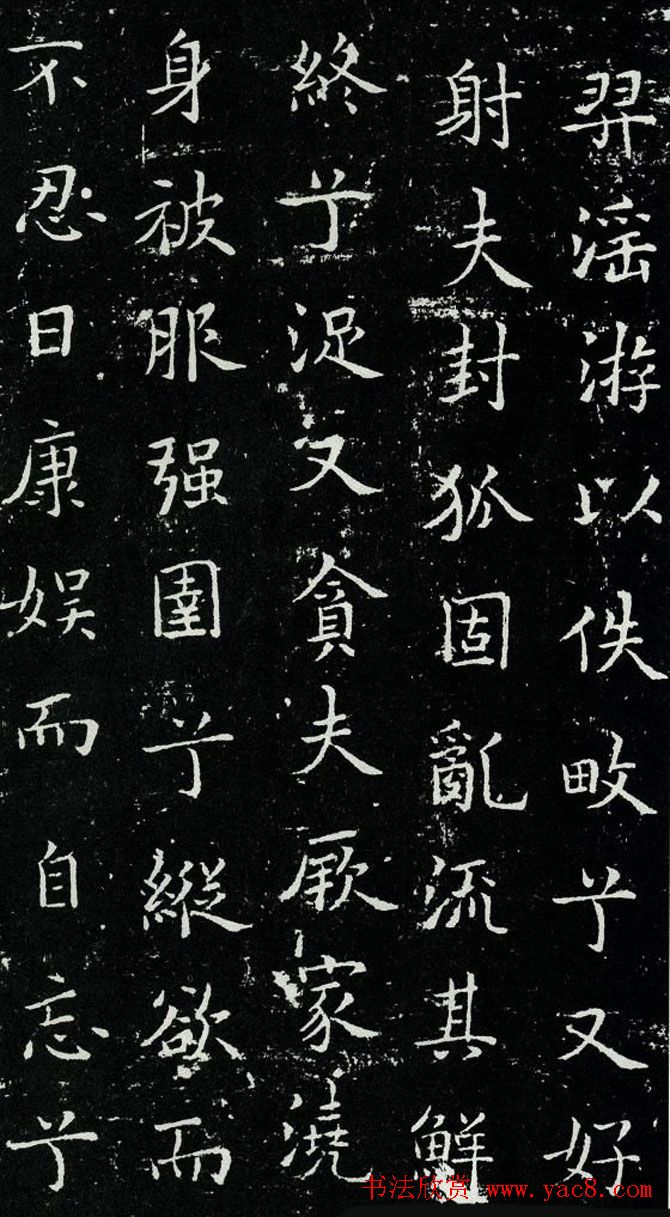 羿淫游以佚畋兮又好
射夫封狐固亂流其鮮
終兮浞又貪夫厥家澆
身被服强圉兮縱欲而
不忍日康娱而自忘兮
书法欣赏 www.yac8.com